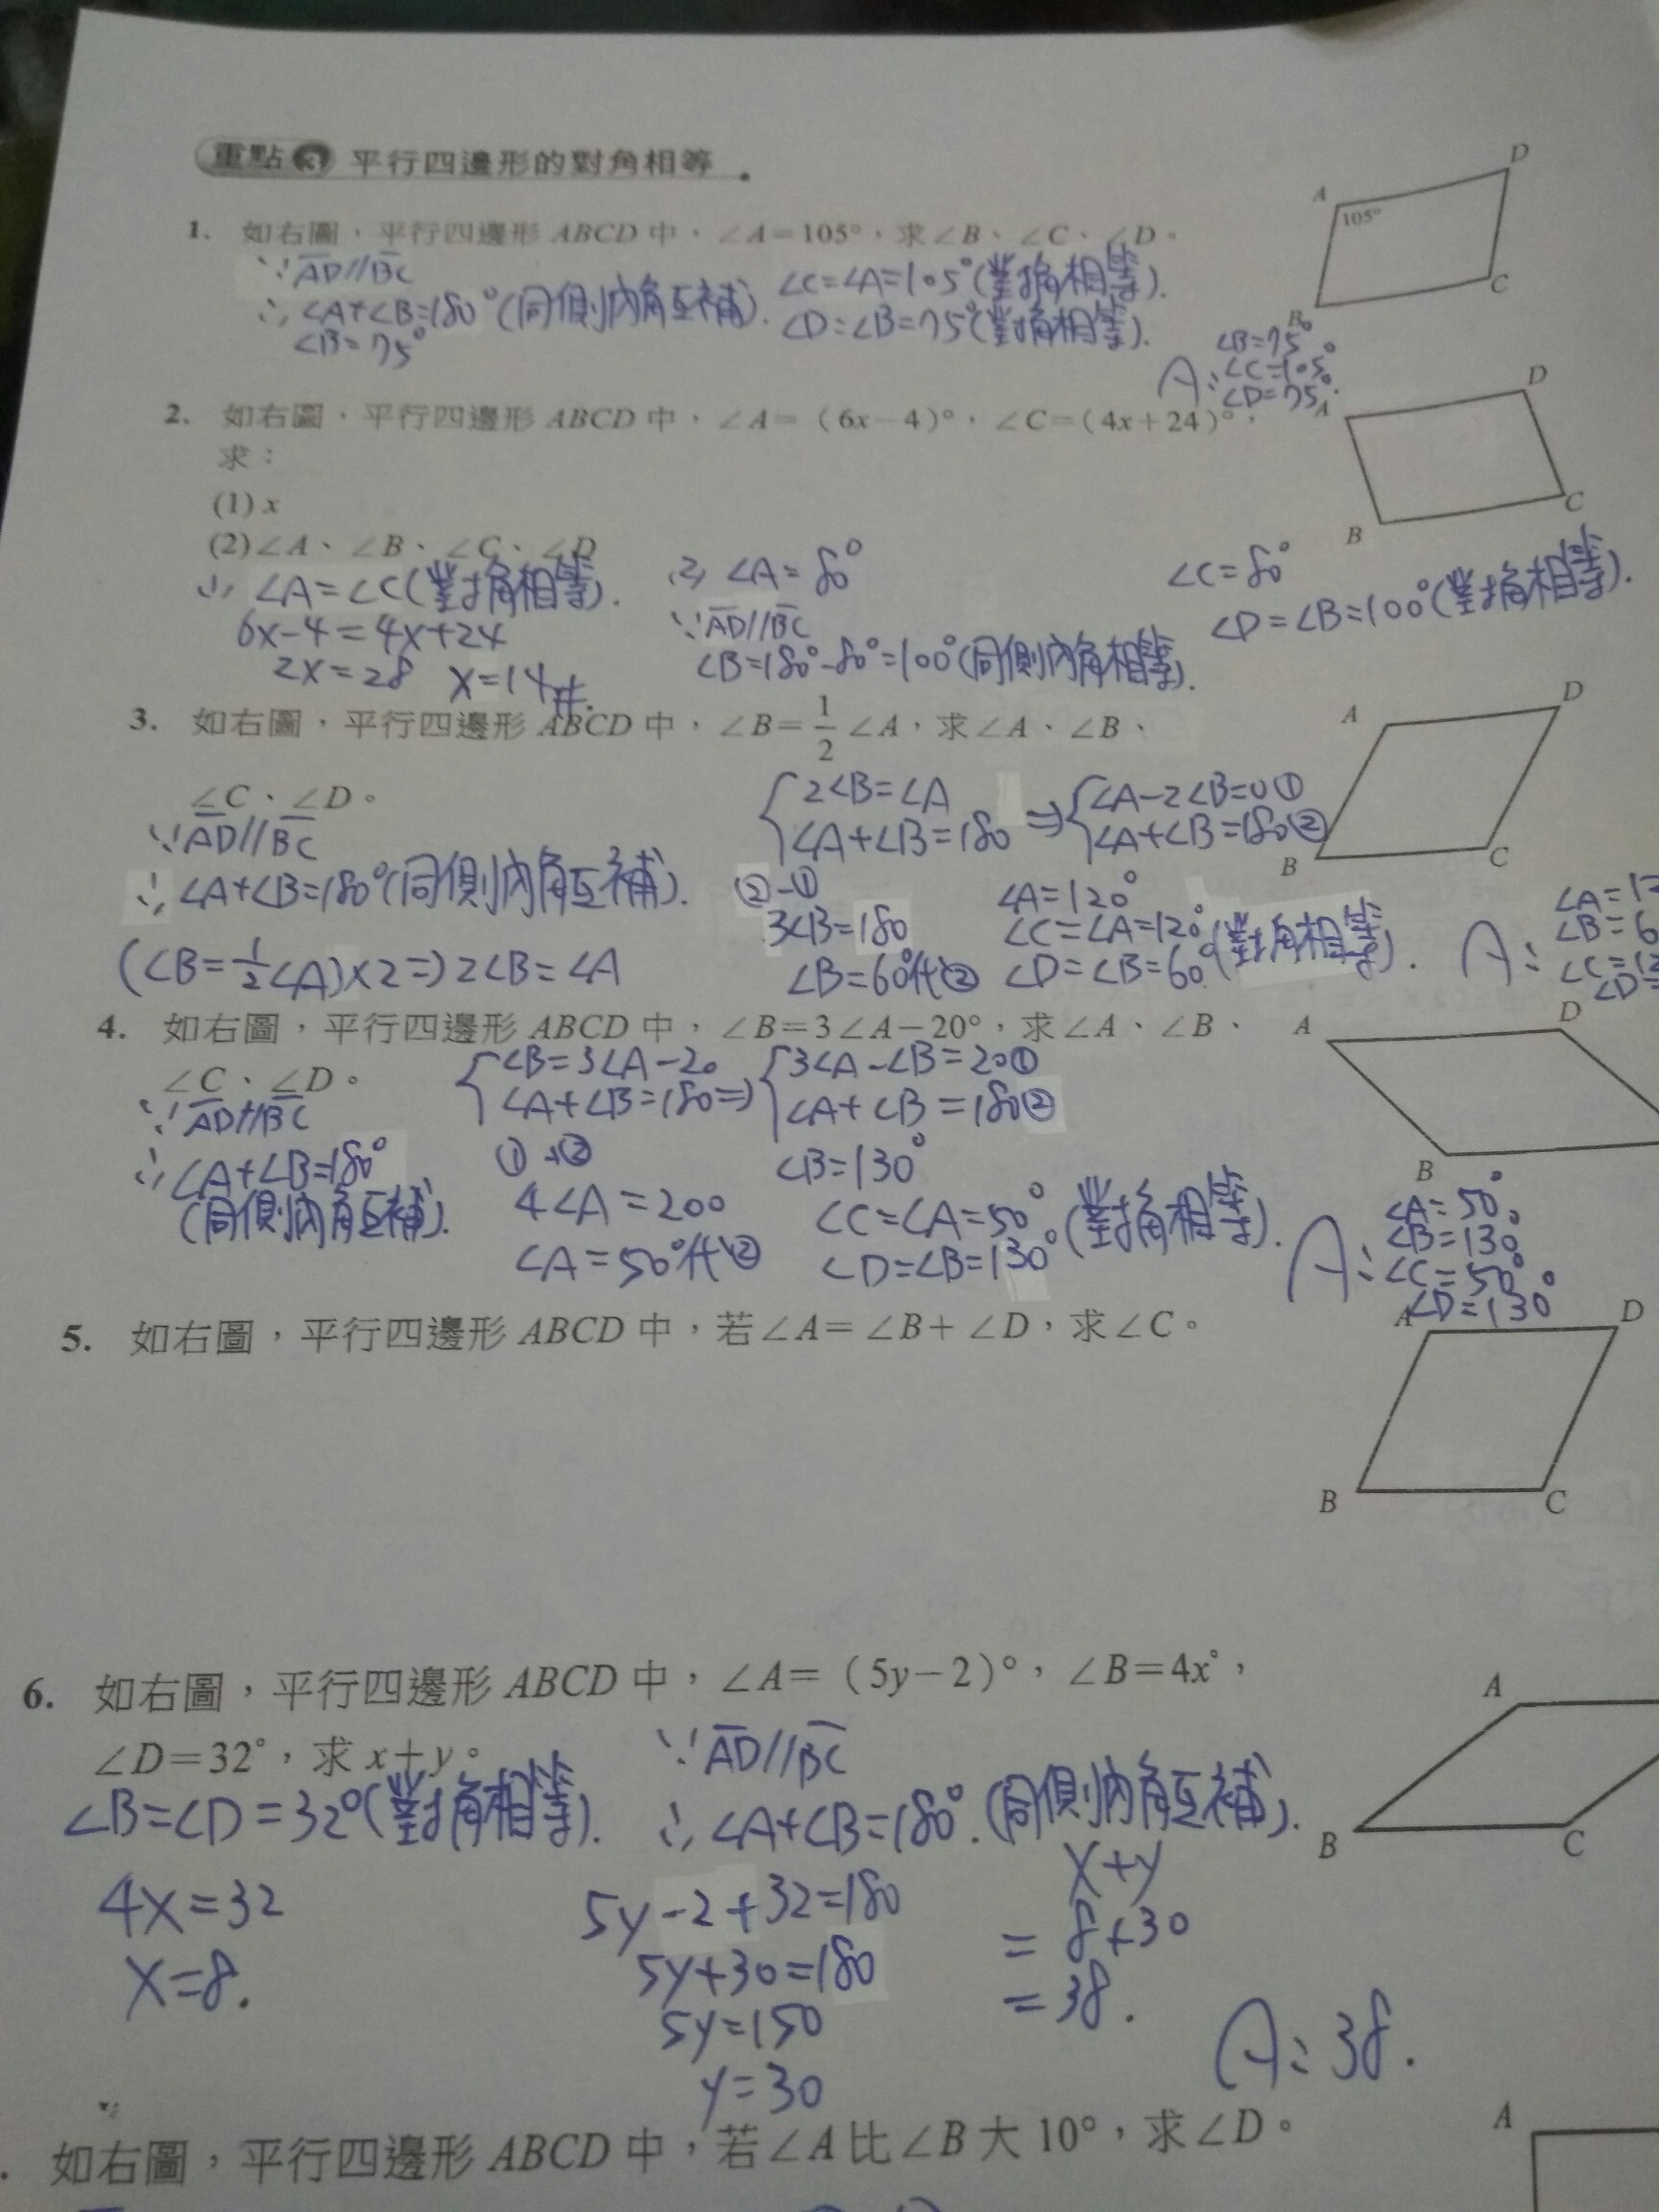 重點 3 平行四邊形的對角相等
1. 如右圖，平行四邊形 ABCD 中，∠A=105°，求∠B、∠C、∠D。
∵ AD//BC
∴ ∠A+∠B=180°(同側內角互補).
∠B=75°
∠C=∠A=105°(對角相等).
∠D=∠B=75°(對角相等).
A D
105°
B C
A: ∠B=75°
∠C=105°
∠D=75°.
2. 如右圖，平行四邊形 ABCD 中，∠A=（6x－4）°，∠C=(4x+24)°，
求：
(1) x
(2)∠A、∠B、∠C、∠D
∠A=∠C(對角相等).
6x-4=4x+24
2x=28 x=14#.
(2) ∠A=80°
∵ AD//BC
∠B=180°-80°=100°(同側內角相等).
∠C=80°
∠D=∠B=100°(對角相等).
A D
B C
3. 如右圖，平行四邊形 ABCD 中，∠B=1/2∠A，求∠A、∠B、
∠C、∠D。
∵ AD//BC
∴ ∠A+∠B=180°(同側內角互補).
(∠B=1/2∠A)×2⇒2∠B=∠A
{2∠B=∠A
∠A+∠B=180
⇒{∠A-2∠B=0①
∠A+∠B=180②
②-①
3∠B=180
∠B=60°代②
∠A=120°
∠C=∠A=120°
∠D=∠B=60° (對角相等).
A D
B C
A: ∠A=12
∠B=6
∠C=12
∠D=
4. 如右圖，平行四邊形 ABCD 中，∠B=3∠A－20°，求∠A、∠B、
∠C、∠D。
∵ AD//BC
∴ ∠A+∠B=180°
(同側內角互補).
{∠B=3∠A-20
∠A+∠B=180⇒
{3∠A-∠B=20①
∠A+∠B=180②
①+②
4∠A=200
∠A=50°代②
∠B=130°
∠C=∠A=50°
∠D=∠B=130° (對角相等).
A D
B
A: ∠A=50°
∠B=130°
∠C=50°
∠D=130°
5. 如右圖，平行四邊形 ABCD 中，若∠A=∠B+∠D，求∠C。
A D
B C
6. 如右圖，平行四邊形 ABCD 中，∠A=（5y－2）°，∠B=4x°，
∠D=32°，求 x+y。
∠B=∠D=32°(對角相等).
4x=32
x=8.
∵ AD//BC
∴ ∠A+∠B=180°.(同側內角互補).
5y-2+32=180
5y+30=180
5y=150
y=30
x+y
=8+30
=38.
A: 38.
A
B C
如右圖，平行四邊形 ABCD 中，若∠A 比∠B 大 10°，求∠D。
A